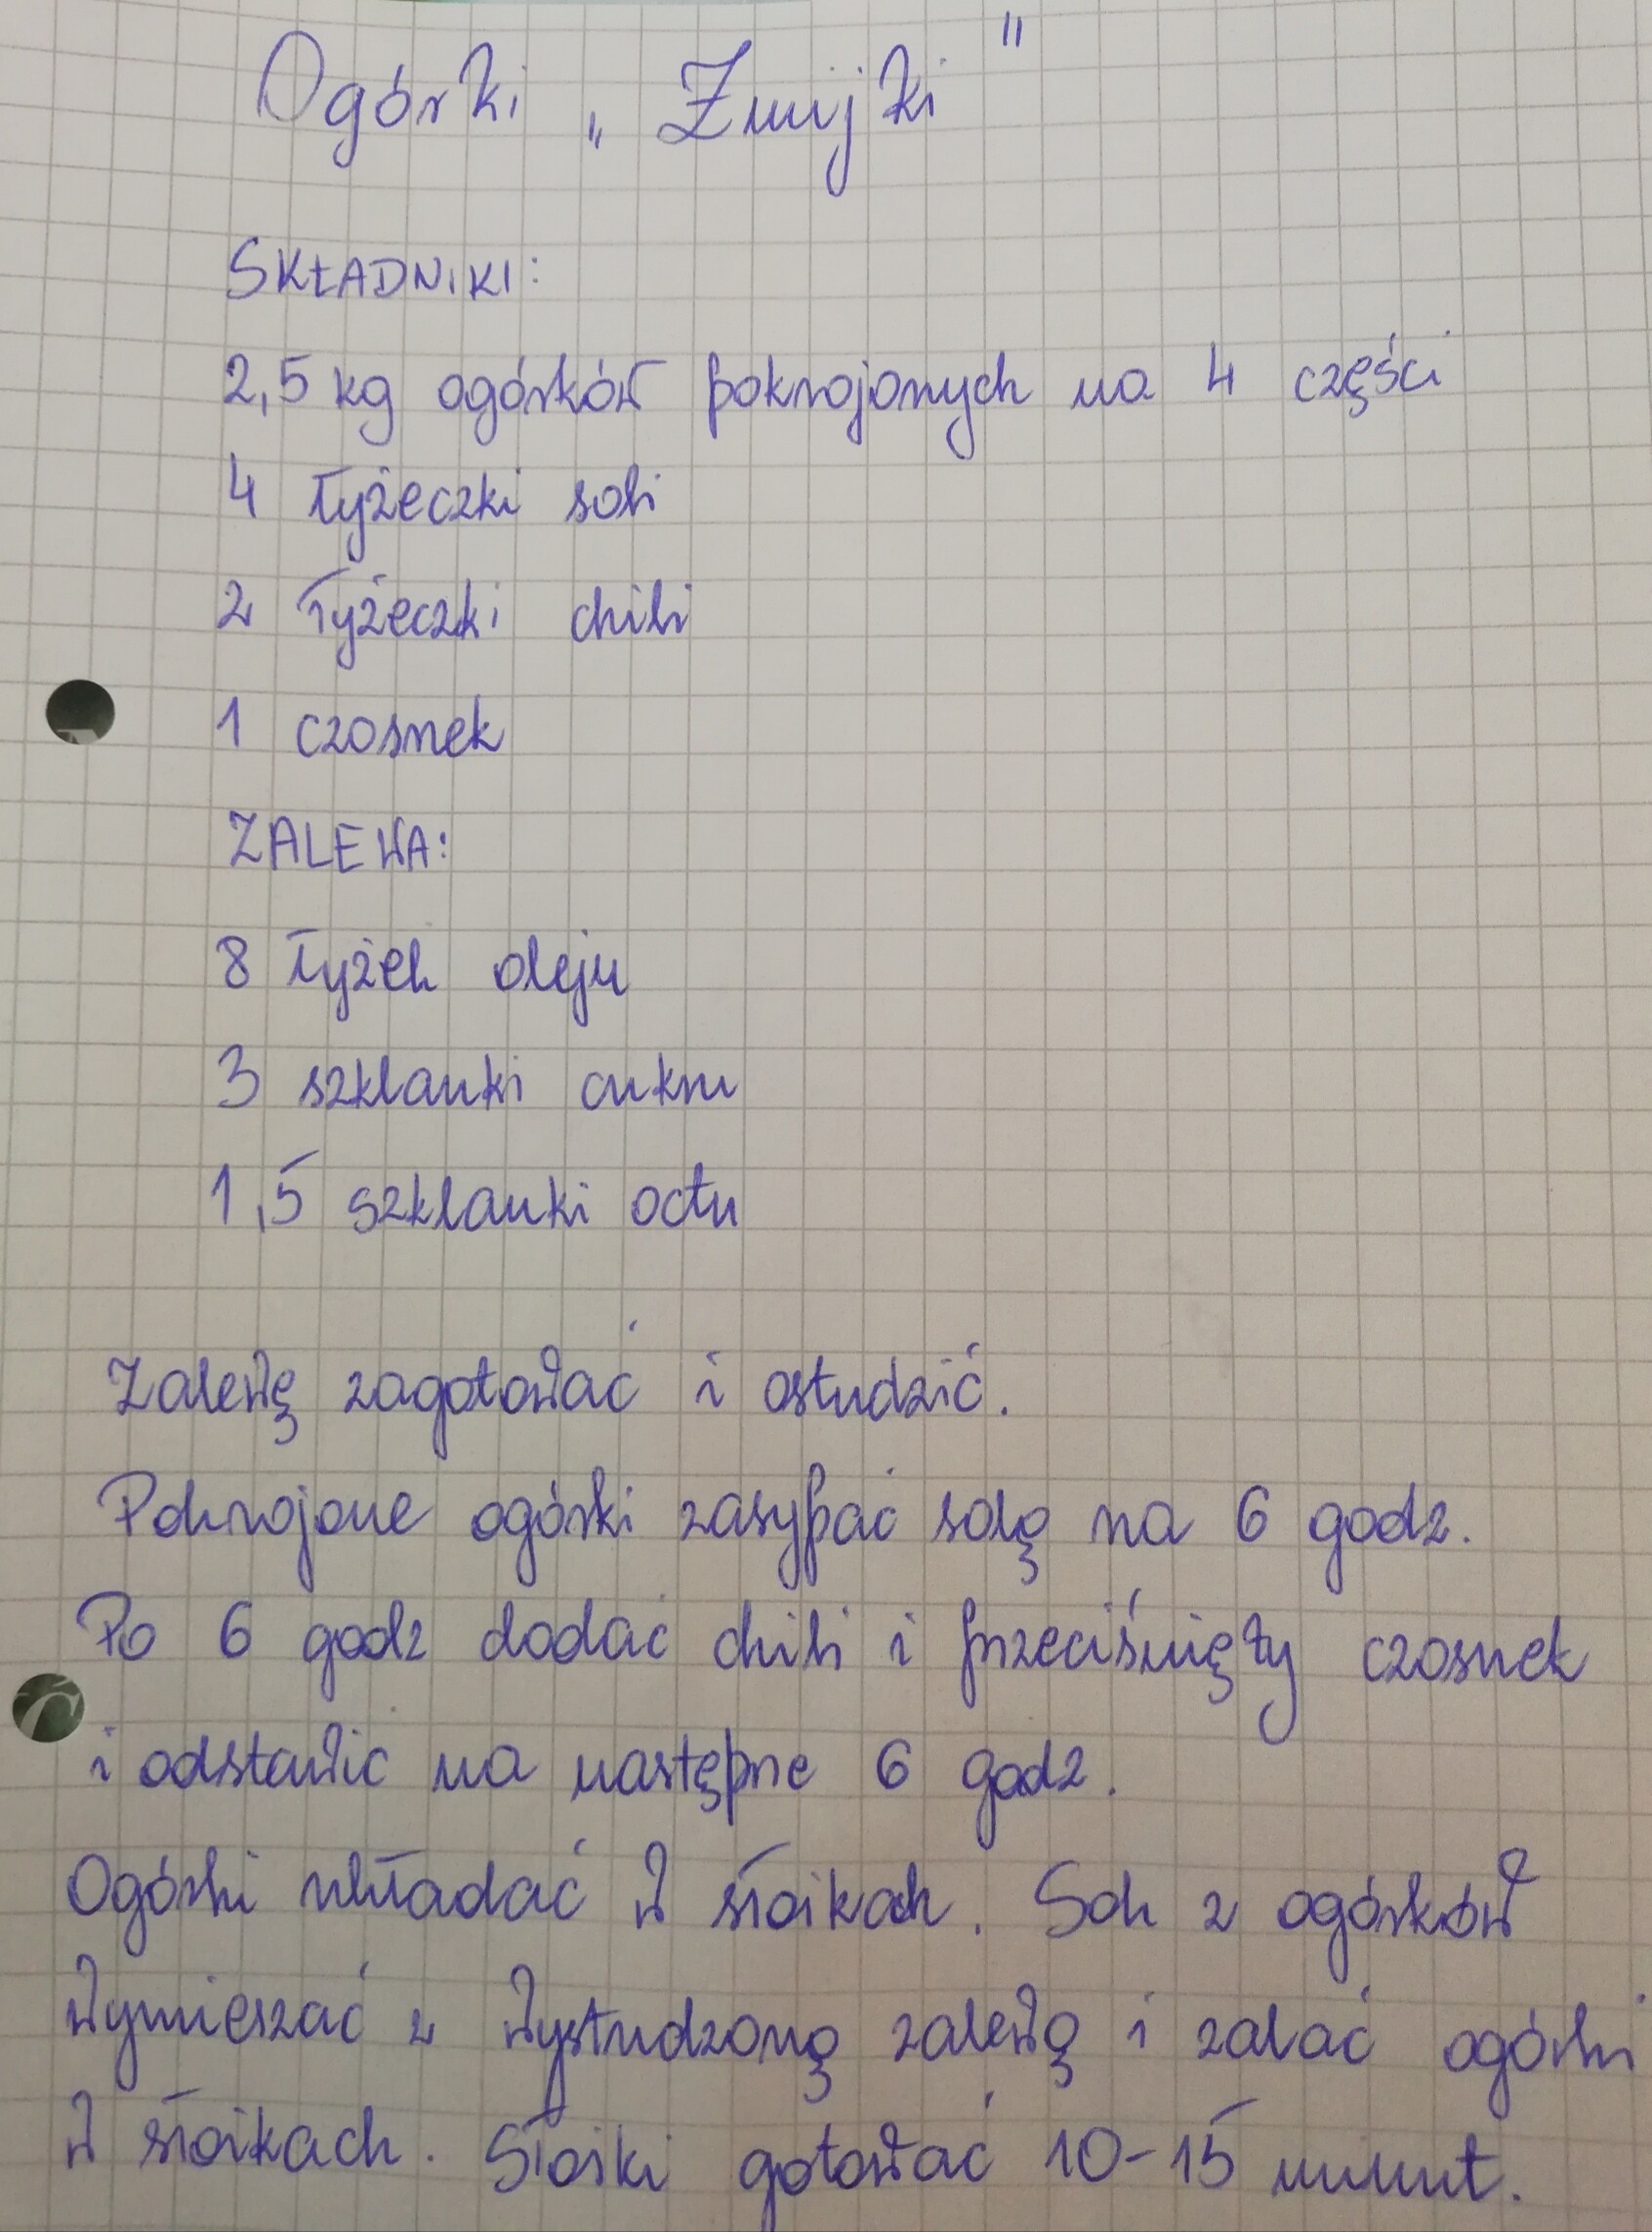 Ogórki „Żmijki"
SKŁADNIKI:
2,5 kg ogórków pokrojonych na 4 części
4 łyżeczki soli
2 łyżeczki chili
1 czosnek
ZALEWA:
8 łyżek oleju
3 szklanki cukru
1,5 szklanki octu
Zalewę zagotować i ostudzić.
Pokrojone ogórki zasypać solą na 6 godz.
Po 6 godz dodać chili i przeciśnięty czosnek
i odstawic na następne 6 godz.
Ogórki układać w słoikach. Sok z ogórków
wymieszać z wystudzoną zalewą i zalać ogórki
w słoikach. Słoiki gotować 10-15 minut.